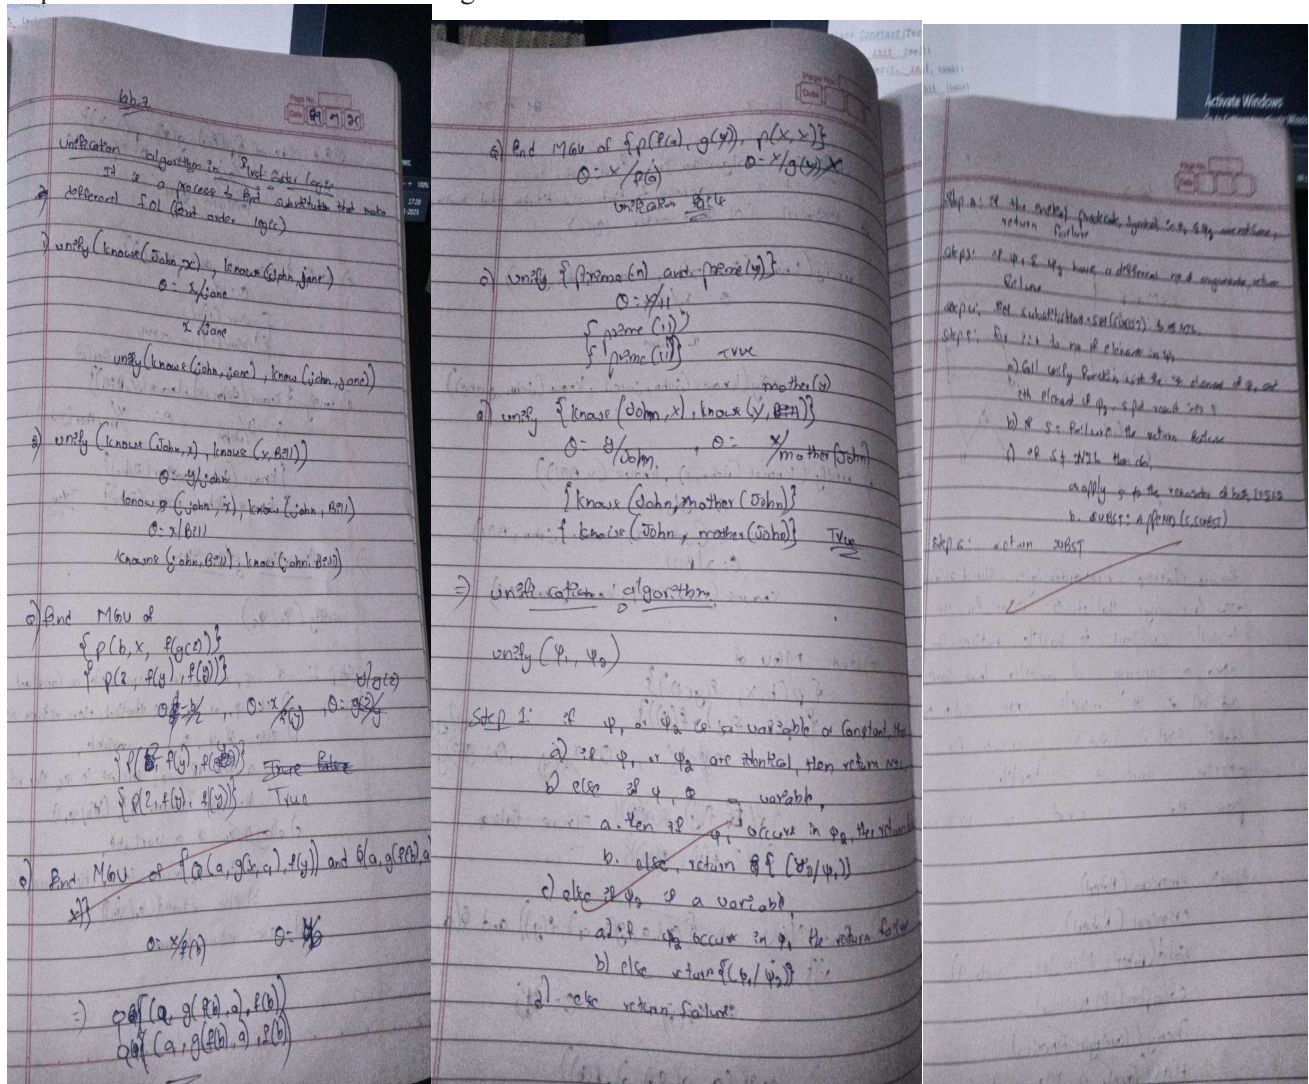 lab-7
Page No.
Date
unification algorithm in first order logic
It is a process to find substitution that make
different FOL (first order logic)
1) unify (knows(John, x), knows(John, jane)
x/jane
unify(knows(john, jane), know(john, jane))
2) unify (knows(John, x), knows(y, Bill))
θ = y/john
knows (john, x), know (john, Bill)
θ = x/Bill
knows (john, Bill), know(john, Bill)
find MGU of
{p(b, x, f(g(z))}
{p(z, f(y), f(y))}
y/g(z)
θ = x/f(y)
True
{p(z, f(y), f(y)} True
find MGU of {Q(a, g(x, a), f(y)) and Q(a, g(f(b), a
x)}
θ: x/f(b)
(a, g(f(b), a), f(b))
(a, g(f(b), a), f(b))
Page No.
Date
find MGU of {p(f(a), g(y)), p(x, x)}
θ = x/f(a) θ = x/g(y) X
unification fails
unify {prime(11) and prime(y)}
θ: y/11
{prime (11)}
{prime (11)} True
mother(y)
unify {knows (John, x), knows (y,
θ = y/John, θ = x/mother(John)
{knows (John, mother (John)}
{knows (John, mother (John)} True
⇒ unification algorithm
unify (Ψ1, Ψ2)
Step 1: if Ψ1 or Ψ2 is a variable or Constant, then
a) if Ψ1 or Ψ2 are identical, then return NIL
b) else if Ψ1 variable,
a. then if Ψ1 occurs in Ψ2, then return
b. else, return { (Ψ2/Ψ1)}
c) else if Ψ2 is a variable,
a) if Ψ2 occurs in Ψ1 the return failure
b) else return {(Ψ1/Ψ2)}
d) else return failure
Activate Windows
Page No.
Date
Step 2: if the initial predicate symbol in Ψ1 & Ψ2 are not same,
return failure
step 3: if Ψ1 & Ψ2 have a different no of arguments, return
failure
step 4: Set substitution set (SUBST) to NIL
step 5: for i=1 to no of elements in Ψ1
a) Call unify function with the ith element of Ψ1 and
ith element of Ψ2, & put result into S
b) if S = failure the return failure
c) if S ≠ NIL then do,
a. apply S to the remainder of both L1 & L2
b. SUBST = APPEND (S, SUBST)
step 6: return SUBST